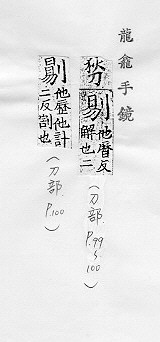 龍龕手鏡
剔他曆反解也二
（刀部 P.99 & 100）
他歷他計二反割也
（刀部 P.100）